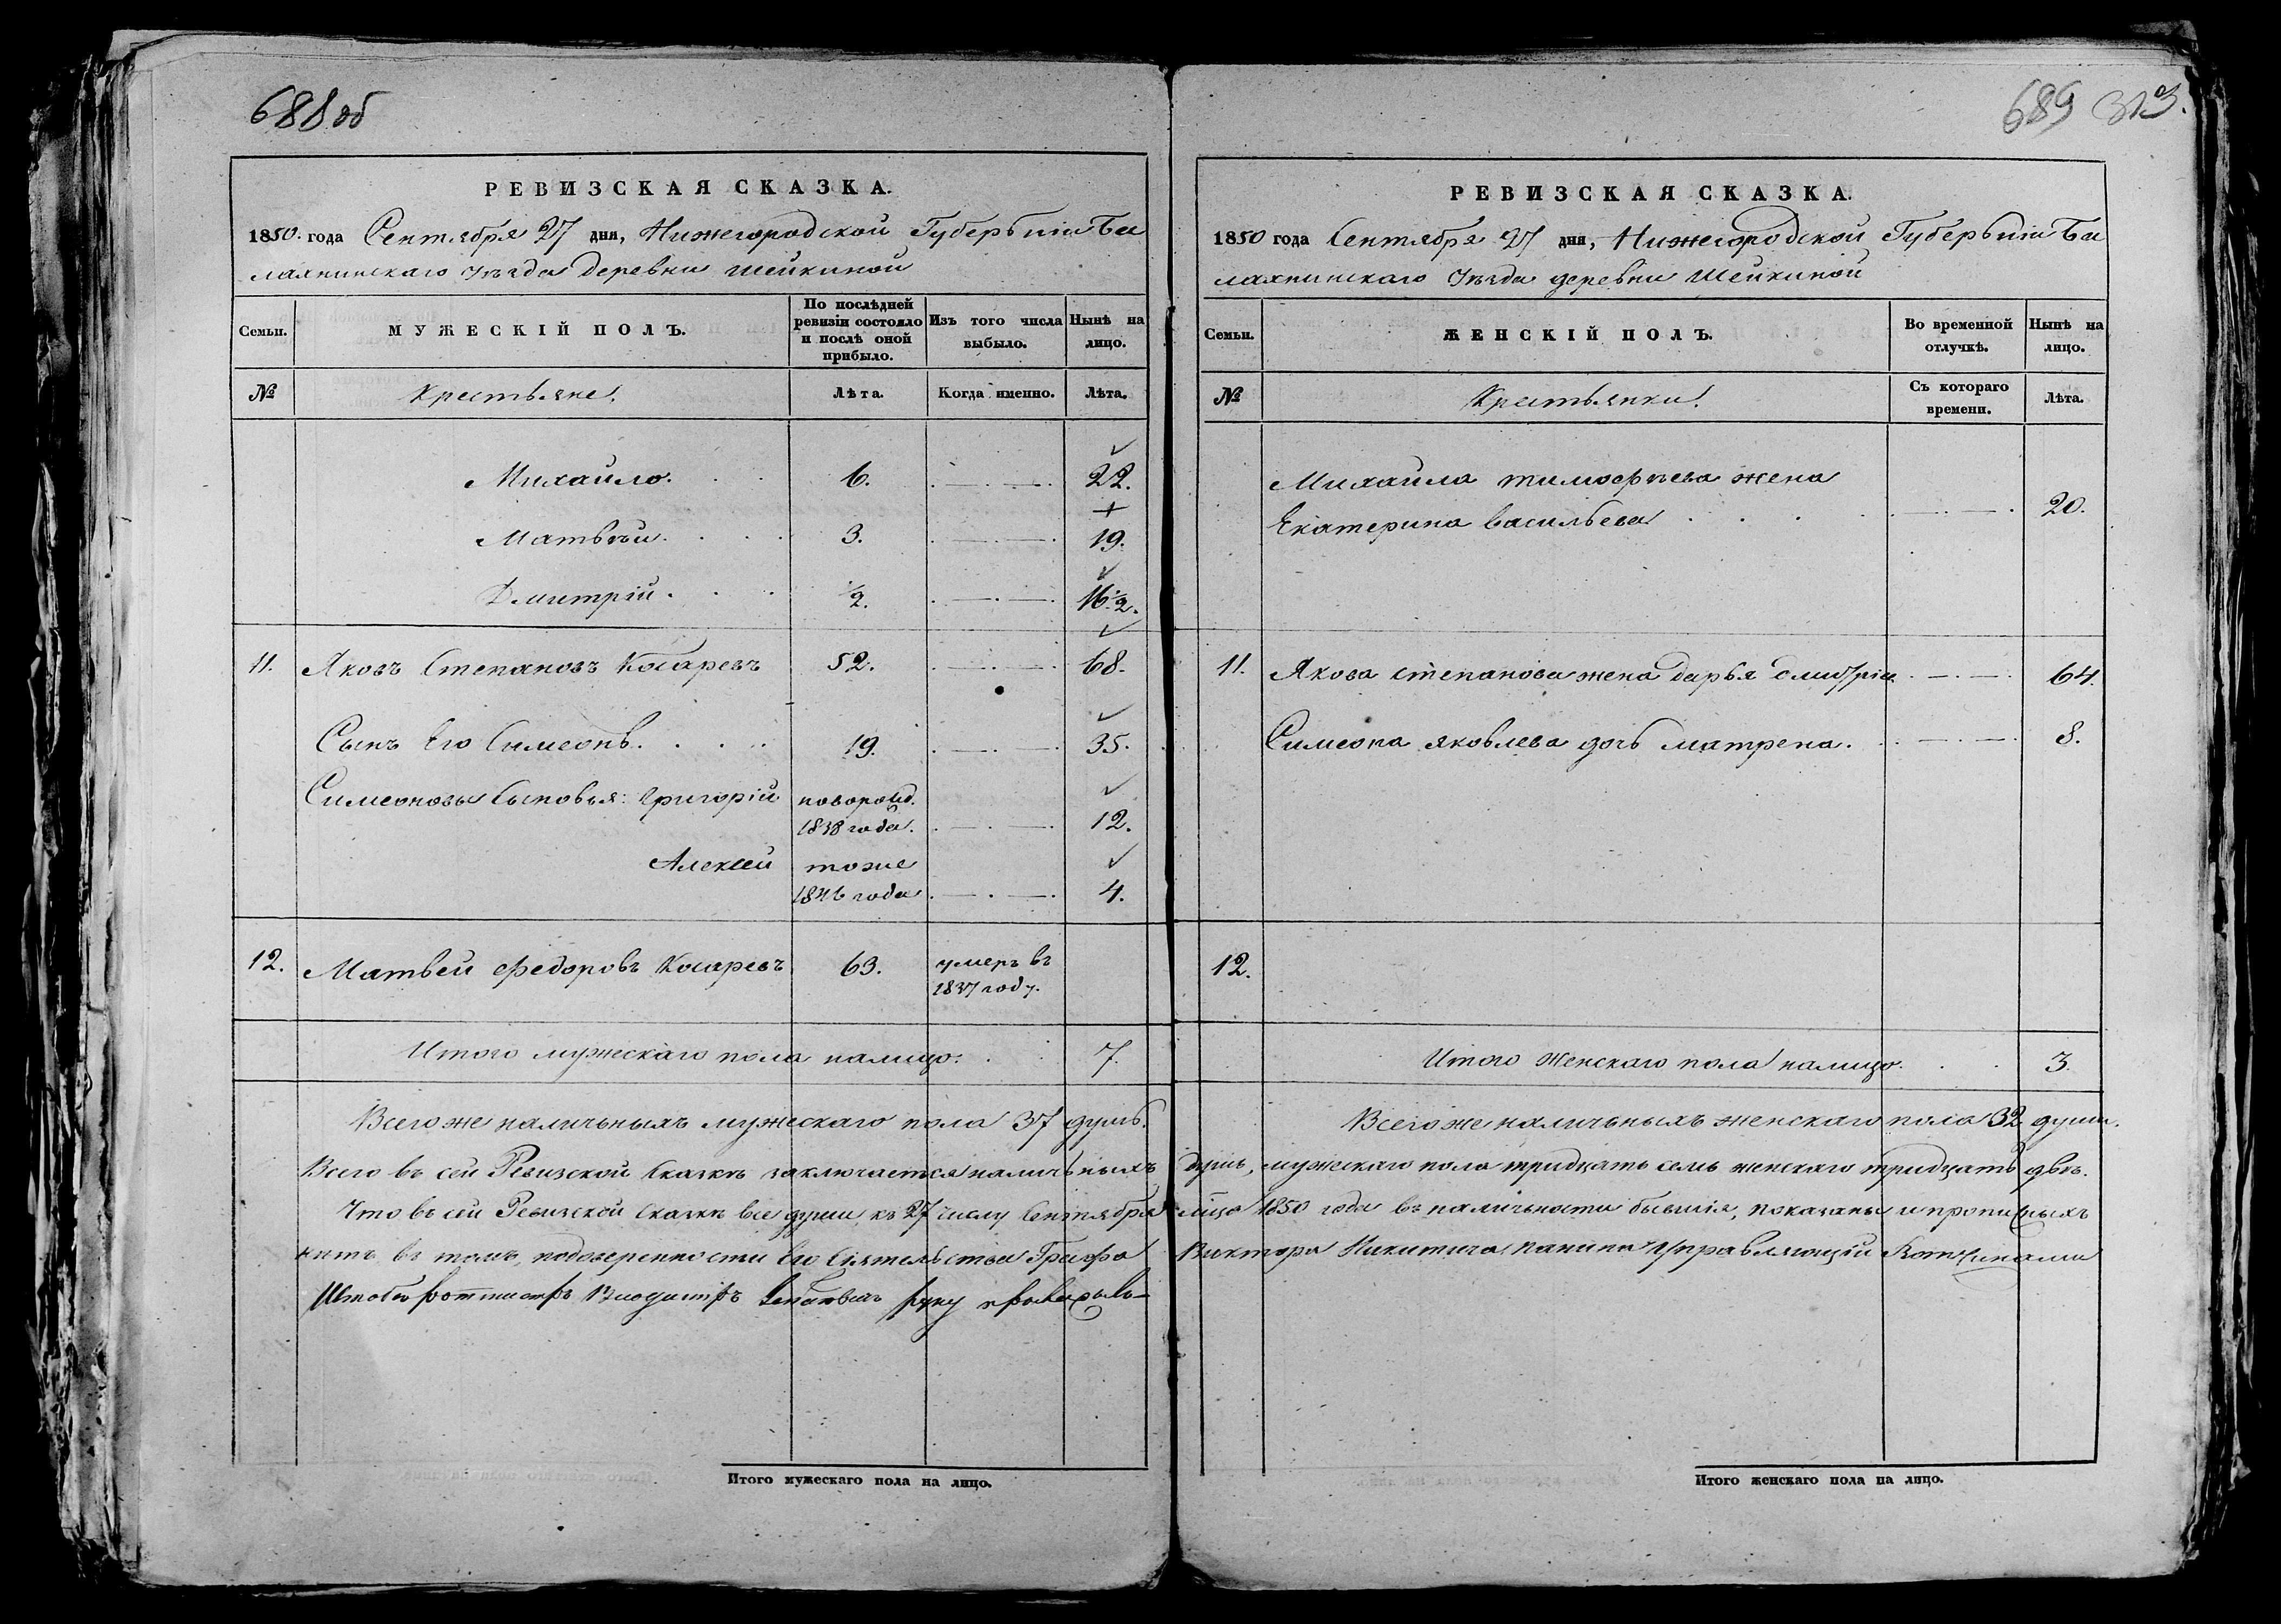 688 об
РЕВИЗСКАЯ СКАЗКА.
1850. года Сентября 27 дня, Нижегородской Губерьнiи Ба
лахнинскаго Уъзда деревни шейкиной
Семьи.
МУЖЕСКІЙ ПОЛЪ.
По послѣдней ревизіи состояло и послѣ оной прибыло.
Изъ того числа выбыло.
Нынѣ на лицо.
№
Крестьяне.
Лѣта.
Когда именно.
Лѣта.
Михайло. 6. 22.
Матвѣй. 3. 19.
Дмитрій. ½. 16½.
11. Яковъ Степановъ Косаревъ 52. 68.
Сынъ Его Симеонъ. 19. 35.
Симеоновы Сыновья: Григорій новорожд. 1838 года. 12.
Алексей тоже 1846 года 4.
12. Матвей Федоровъ Косаревъ 63. умеръ въ 1837 году.
Итого мужескаго пола налицо. 7.
Всего же наличьныхъ мужескаго пола 37 душъ.
Всего въ сей Ревизской Сказкѣ заключается наличьныхъ
Что въ сей Ревизской Сказкѣ все души, къ 27 числу Сентября
нѣтъ въ томъ, подоверенности Его Сіятельства Графа
Штабъ Ротмистръ руку приложилъ
Итого мужескаго пола на лицо.
689 313.
РЕВИЗСКАЯ СКАЗКА.
1850 года Сентября 27 дня, Нижегородской Губерьніи Ба
лахнинскаго Уѣзда деревни Шейкиной
Семьи.
ЖЕНСКІЙ ПОЛЪ.
Во временной отлучкѣ.
Нынѣ на лицо.
№
Крестьянки.
Съ котораго времени.
Лѣта.
Михаила тимофѣева жена
Екатерина васильева 20.
11. Якова степанова жена дарья дмитріи. 64.
Симеона яковлева дочь матрена. 8.
12.
Итого женскаго пола налицо. 3.
Всего же наличьныхъ женскаго пола 32 души.
душъ, мужескаго пола тридцать семь женскаго тридцать двѣ.
1850 года въ наличьности бывшія, показаны и прописныхъ
Виктора Никитича панина Управляющій Вотчинами
Итого женскаго пола на лицо.